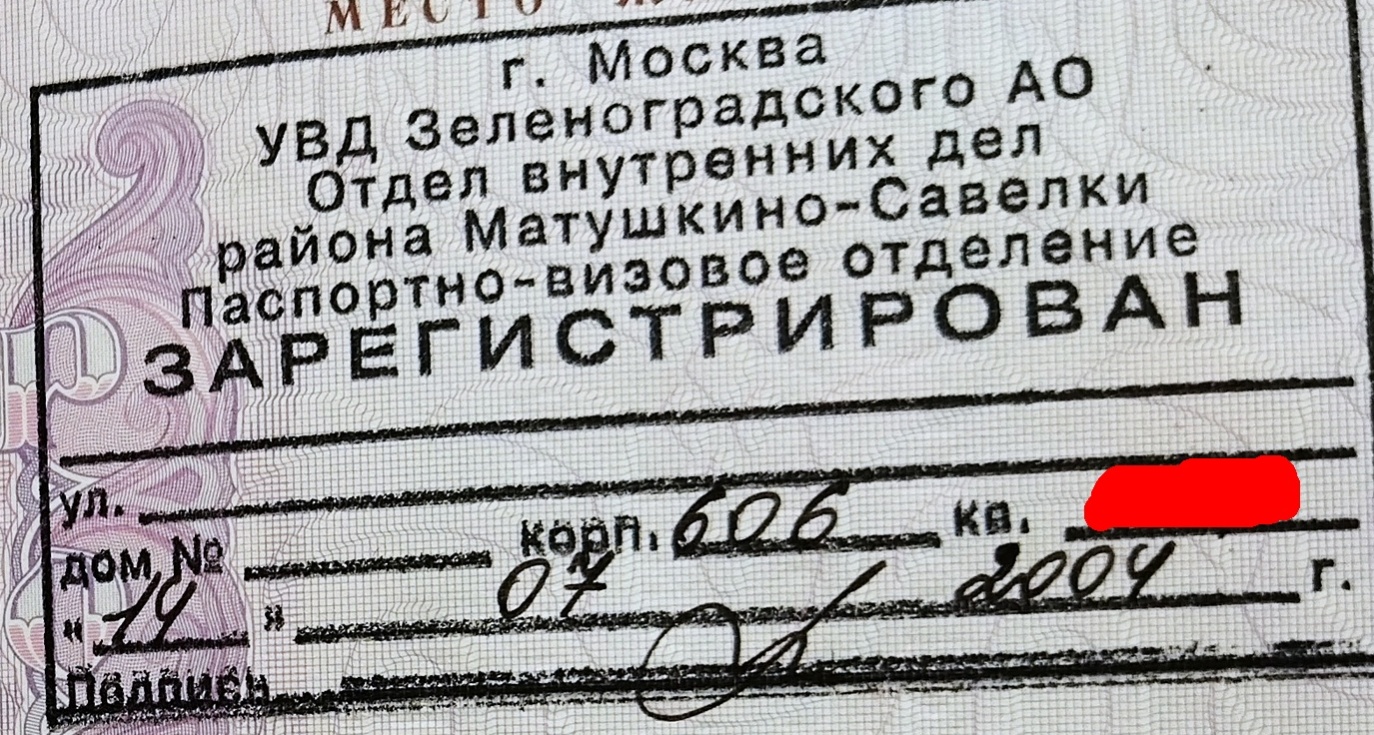 МЕСТО
г. Москва
УВД Зеленоградского АО
Отдел внутренних дел
района Матушкино-Савелки
Паспортно-визовое отделение
ЗАРЕГИСТРИРОВАН
ул.
дом № корп. 606 кв.
"14" 07 2004 г.
Подпись